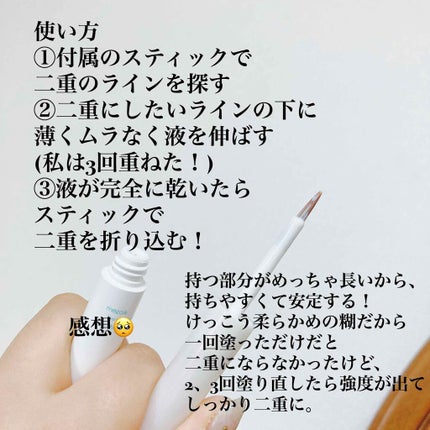 使い方
①付属のスティックで
二重のラインを探す
②二重にしたいラインの下に
薄くムラなく液を伸ばす
(私は3回重ねた！)
③液が完全に乾いたら
スティックで
二重を折り込む！
感想🥺
持つ部分がめっちゃ長いから、
持ちやすくて安定する！
けっこう柔らかめの糊だから
一回塗っただけだと
二重にならなかったけど、
2、3回塗り直したら強度が出て
しっかり二重に。